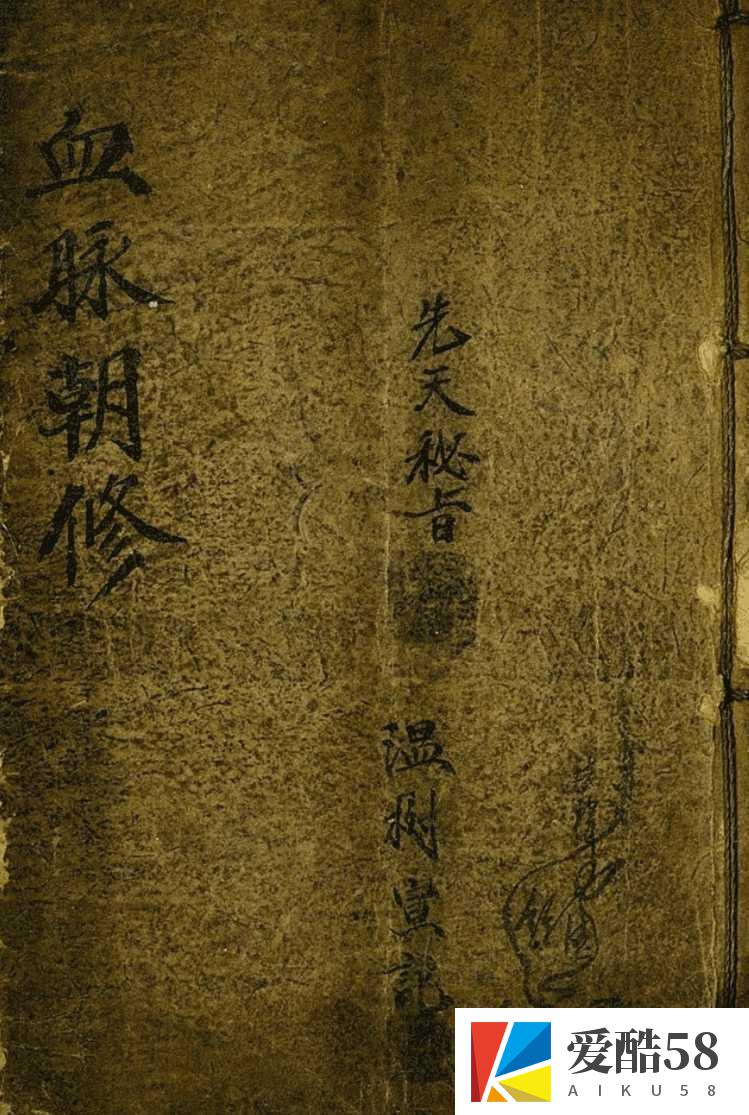 血脉朝修
先天秘旨
温树宣記
爱酷58
AIKU58